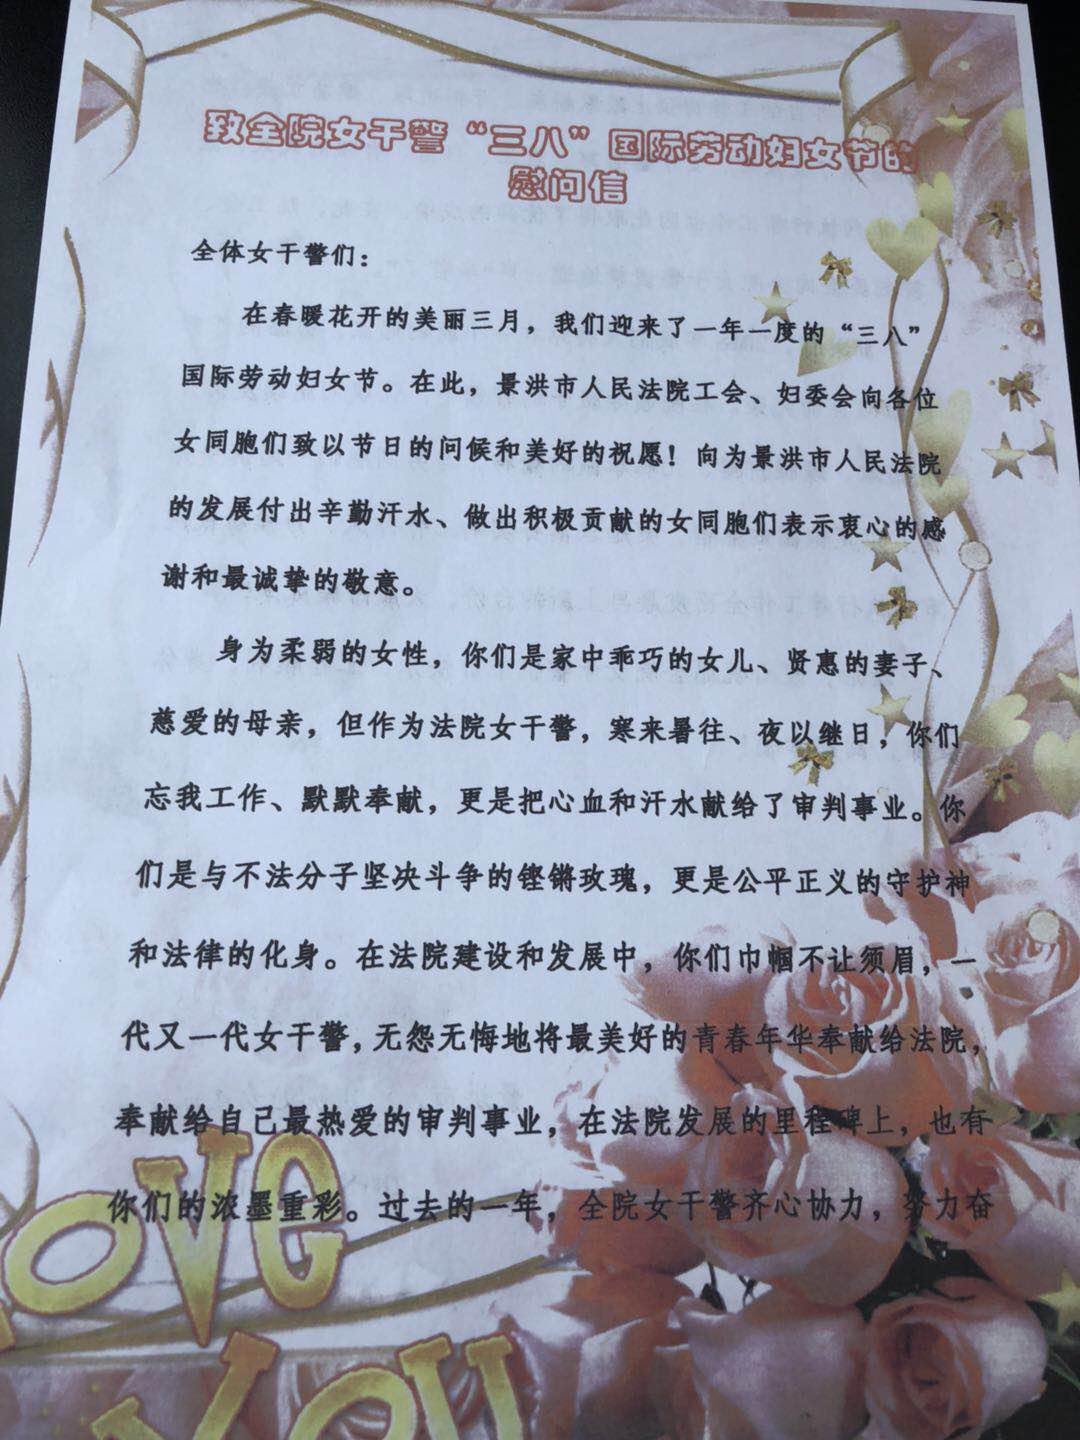 致全院女干警“三八”国际劳动妇女节的
慰问信
全体女干警们：
在春暖花开的美丽三月，我们迎来了一年一度的“三八”
国际劳动妇女节。在此，景洪市人民法院工会、妇委会向各位
女同胞们致以节日的问候和美好的祝愿！向为景洪市人民法院
的发展付出辛勤汗水、做出积极贡献的女同胞们表示衷心的感
谢和最诚挚的敬意。
身为柔弱的女性，你们是家中乖巧的女儿、贤惠的妻子、
慈爱的母亲，但作为法院女干警，寒来暑往、夜以继日，你们
忘我工作、默默奉献，更是把心血和汗水献给了审判事业。你
们是与不法分子坚决斗争的铿锵玫瑰，更是公平正义的守护神
和法律的化身。在法院建设和发展中，你们巾帼不让须眉，一
代又一代女干警，无怨无悔地将最美好的青春年华奉献给法院，
奉献给自己最热爱的审判事业，在法院发展的里程碑上，也有
你们的浓墨重彩。过去的一年，全院女干警齐心协力，努力奋
LOVE
YOU